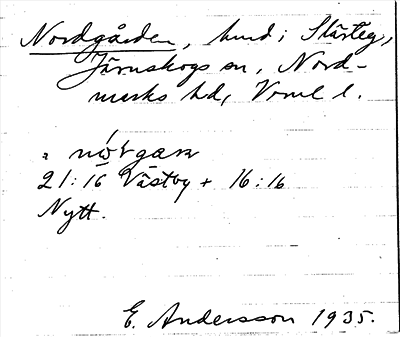 Nordgården, hmd i Slärteg,
Järnskogs sn, Nord-
marks hd, Vrml l.
a nώ̨ʳgaɳ
21:16 Västby + 16:16
Nytt.
E. Andersson 1935.